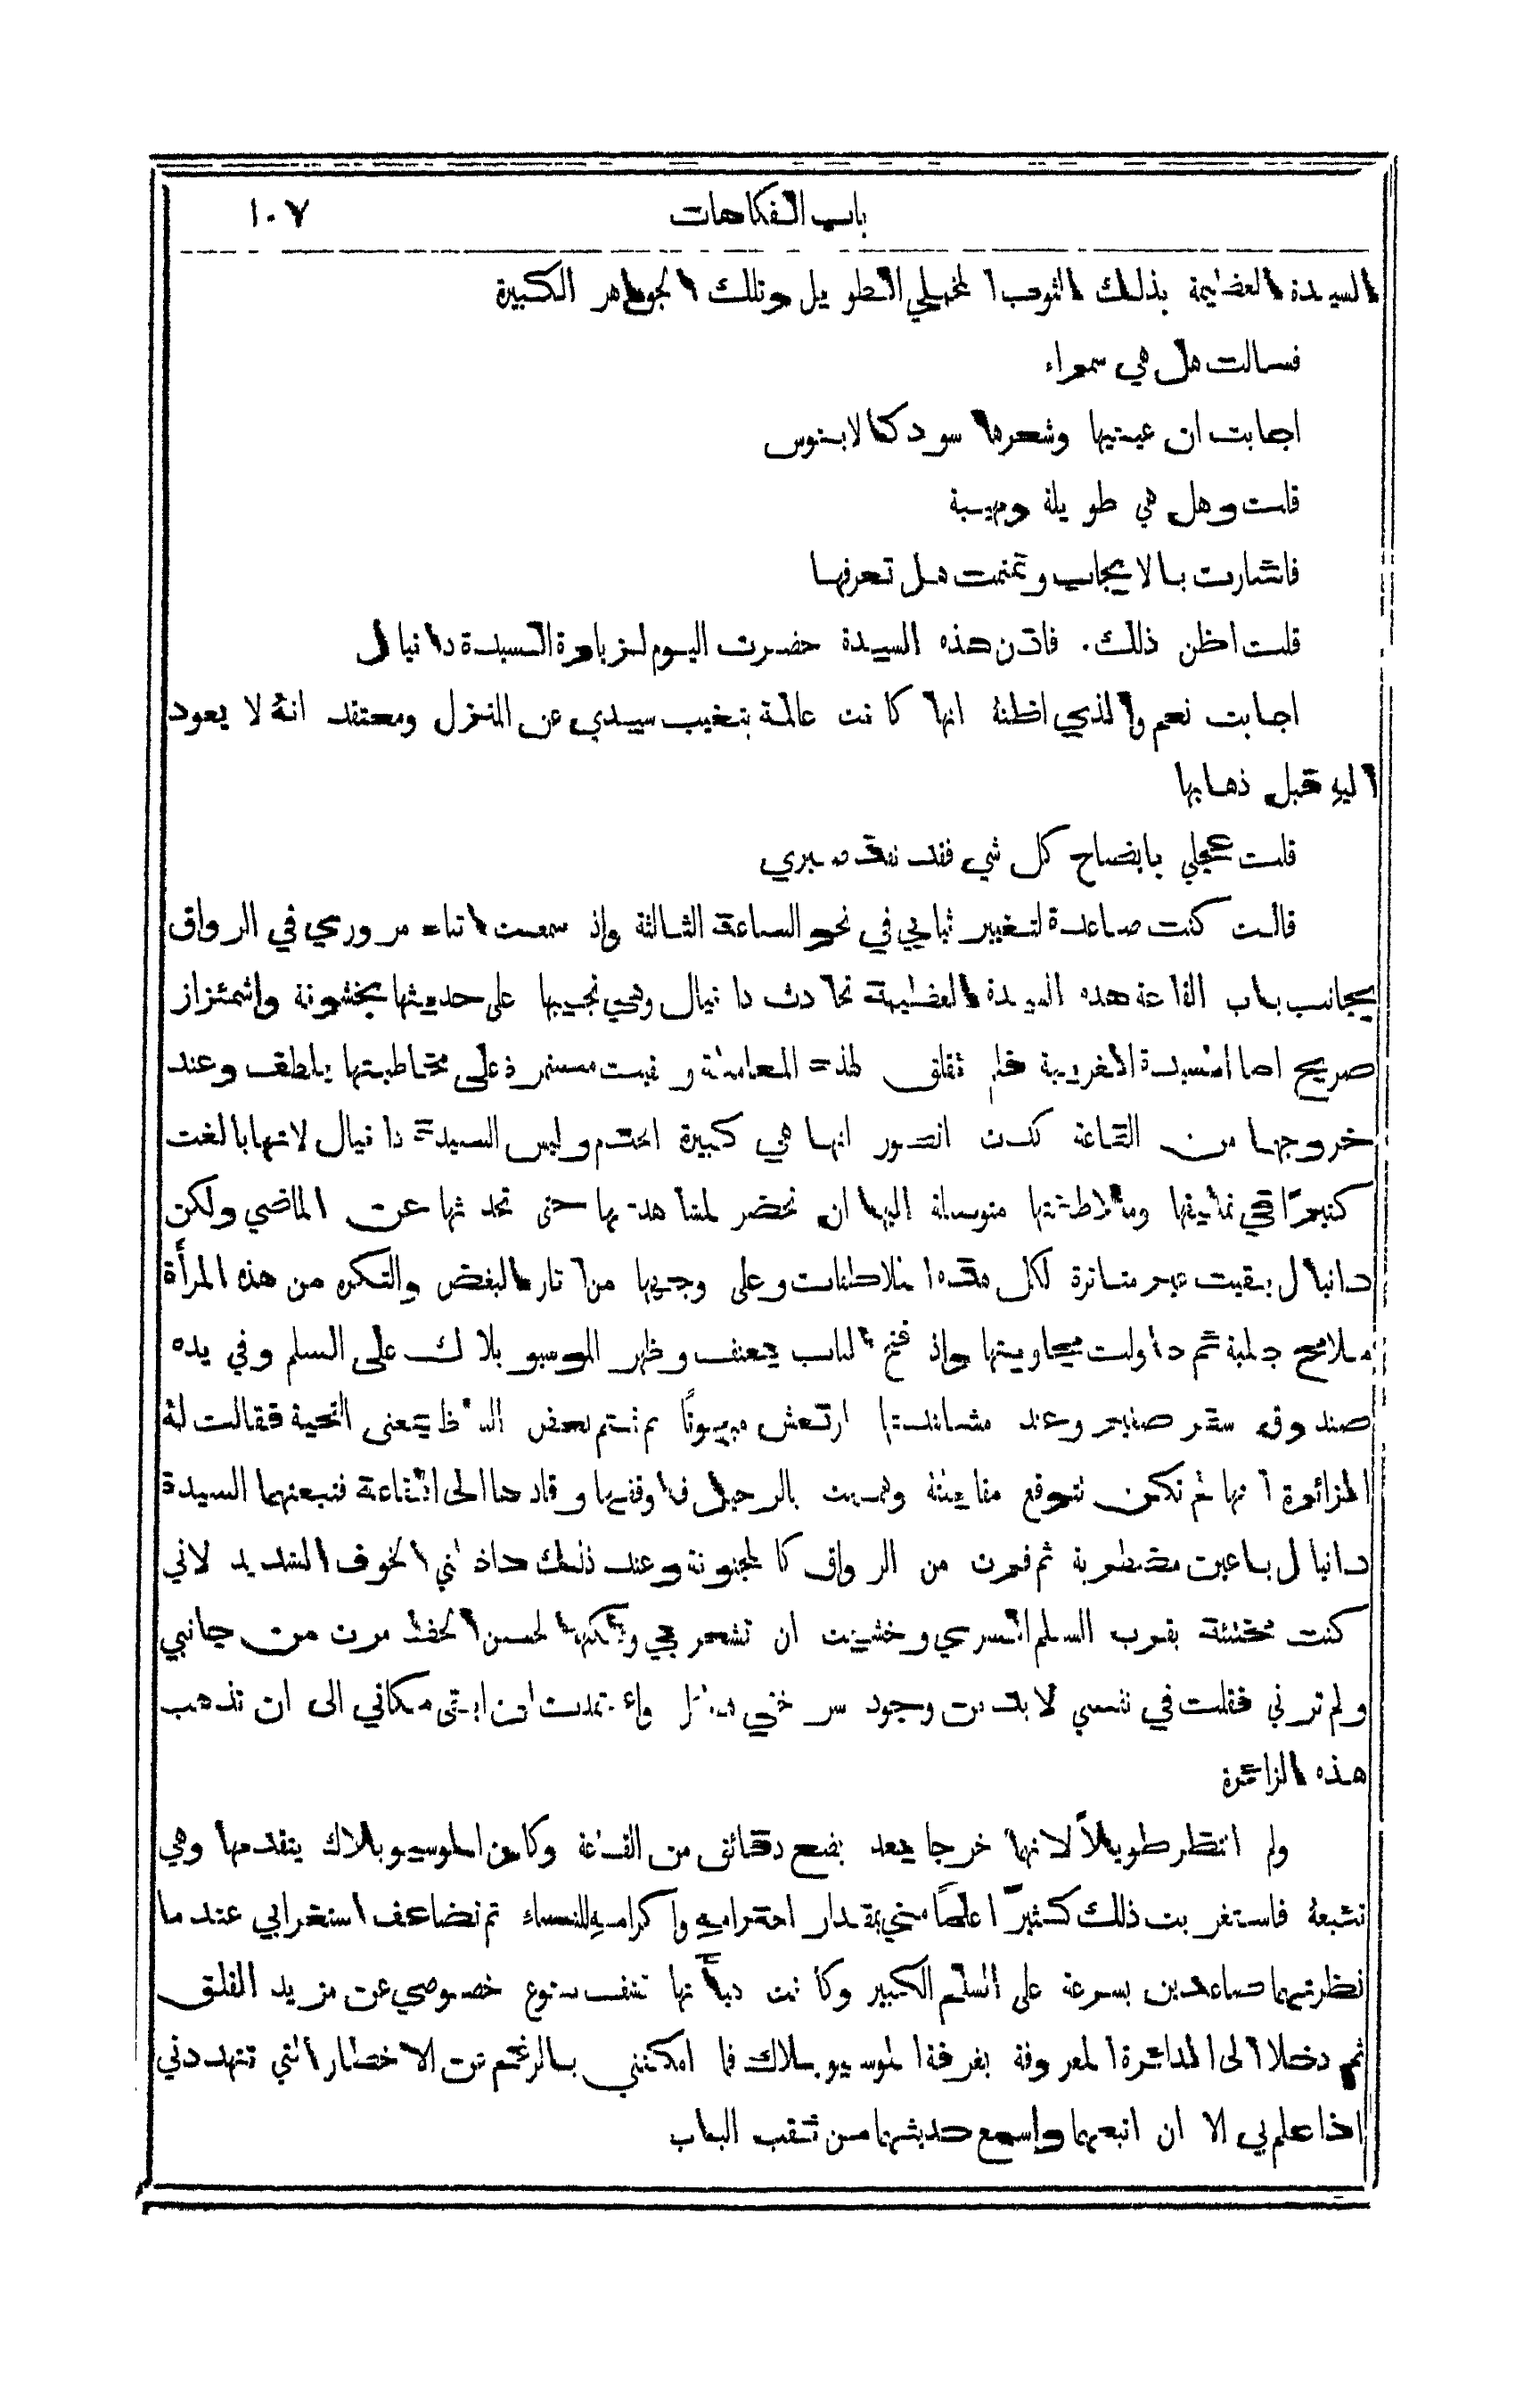 باب الفكاهات ١٠٧
السيدة العظيمة بذلك الثوب المخملي الطويل وتلك الجواهر الكبيرة
فسالت هل هي سمراء
اجابت ان عينيها وشعرها سود كالابنوس
قلت وهل هي طويلة ومهيبة
فاشارت بالايجاب وتمتمت هل تعرفها
قلت اظن ذلك. فاذن هذه السيدة حضرت اليوم لزيارة السيدة دانيال
اجابت نعم والذي اظنهُ انها كانت عالمة بتغيب سيدي عن المنزل ومعتقد انهُ لا يعود
اليهِ قبل ذهابها
قلت عجلي بايضاح كل شي فقد نفد صبري
قالت كنت صاعدة لتغيير ثيابي في نحو الساعة الثالثة واذ سمعت اثناء مروري في الرواق
بجانب باب القاعة هذه السيدة العظيمة تحادث دانيال وهي تجيبها على حديثها بخشونة واشمئزاز
صريح اما السيدة الغريبة فلم تقلق لهذه المعاملة وبقيت مستمرة على مخاطبتها بلطف وعند
خروجها من القاعة كدت اتصور انها هي كبيرة الخدم وليس السيدة دانيال لانها بالغت
كثيرًا في تمليقها وملاطفتها متوسلة اليها ان تحضر لمشاهدتها حتى تحدثها عن الماضي ولكن
دانيال بقيت غير متاثرة لكل هذه الملاطفات وعلى وجهها من اثار البغض والتكره من هذه المرأة
ملامح جلية ثم حاولت مجاوبتها واذ فتح الباب بعنف وظهر الموسيو بلاك على السلم وفي يده
صندوق سفر صغير وعند مشاهدتها ارتعش مبهوتًا ثم تمتم بعض الفاظ بمعنى التحية فقالت لهُ
الزائرة انها لم تكن تتوقع مقابلتهُ وهمت بالرحيل فاوقفها وقادها الى القاعة فتبعتهما السيدة
دانيال باعين مضطربة ثم فرت من الرواق كالمجنونة وعند ذلك داخلني الخوف الشديد لاني
كنت مختبئة بقرب السلم السري وخشيت ان تشعر بي ولكنها لحسن الحظ مرت من جانبي
ولم ترني فقلت في نفسي لا بد من وجود سر خفي واعتمدت ان ابقى مكاني الى ان تذهب
هذه الزائرة
ولم انتظر طويلاً لانهما خرجا بعد بضع دقائق من القاعة وكان الموسيو بلاك يتقدمها وهي
تتبعهُ فاستغربت ذلك كثيرًا علمًا مني بمقدار احترامهِ واكرامهِ للنساء ثم تضاعف استغرابي عند ما
نظرتهما صاعدين بسرعة على السلم الكبير وكانت هيأتها تشف بنوع خصوصي عن مزيد القلق
ثم دخلا الى الدائرة المعروفة بغرفة الموسيو بلاك فما امكنني بالرغم عن الاخطار التي تتهددني
اذا علم بي الا ان اتبعهما واسمع حديثهما من ثقب الباب